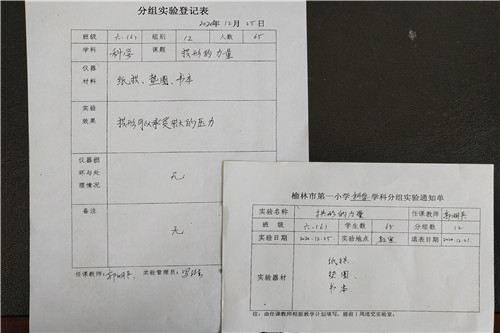 分组实验登记表
2020年12月25日
班级 六.(6) 组别 12 人数 65
学科 科学 课题 拱形的力量
仪器材料 纸拱、垫圈、书本
实验效果 拱形可以承受很大的压力
仪器损坏与处理情况 无
备注 无
任课教师: 实验管理员:
榆林市第一小学科学学科分组实验通知单
实验名称 拱形的力量 任课教师
班级 六.(6) 学生数 65 分组数 12
实验日期 2020.12.25 实验地点 填表日期 2020.12.21
实验器材 纸拱
垫圈
书本
注:由任课教师根据教学计划填写,提前1周送交实验室。